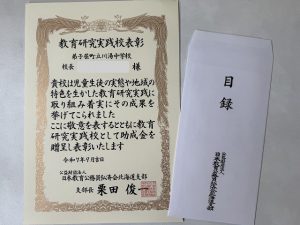 教育研究実践校表彰
弟子屈町立川湯中学校
校長 様
貴校は児童生徒の実態や地域の
特色を生かした教育研究実践に
取り組み着実にその成果を
挙げてこられました
ここに敬意を表するとともに教育
研究実践校として助成金を
贈呈し表彰いたします
令和7年9月吉日
公益財団法人
日本教育公務員弘済会北海道支部
支部長 栗田 俊一
目録
公益財団法人